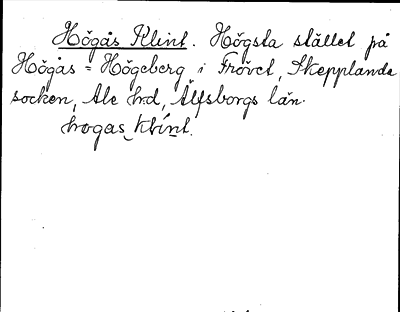 Högås Klint. Högsta stället på
Högås = Högeberg i Frövet, Skepplanda
socken, Ale hrd, Älfsborgs län.
hogas klint.